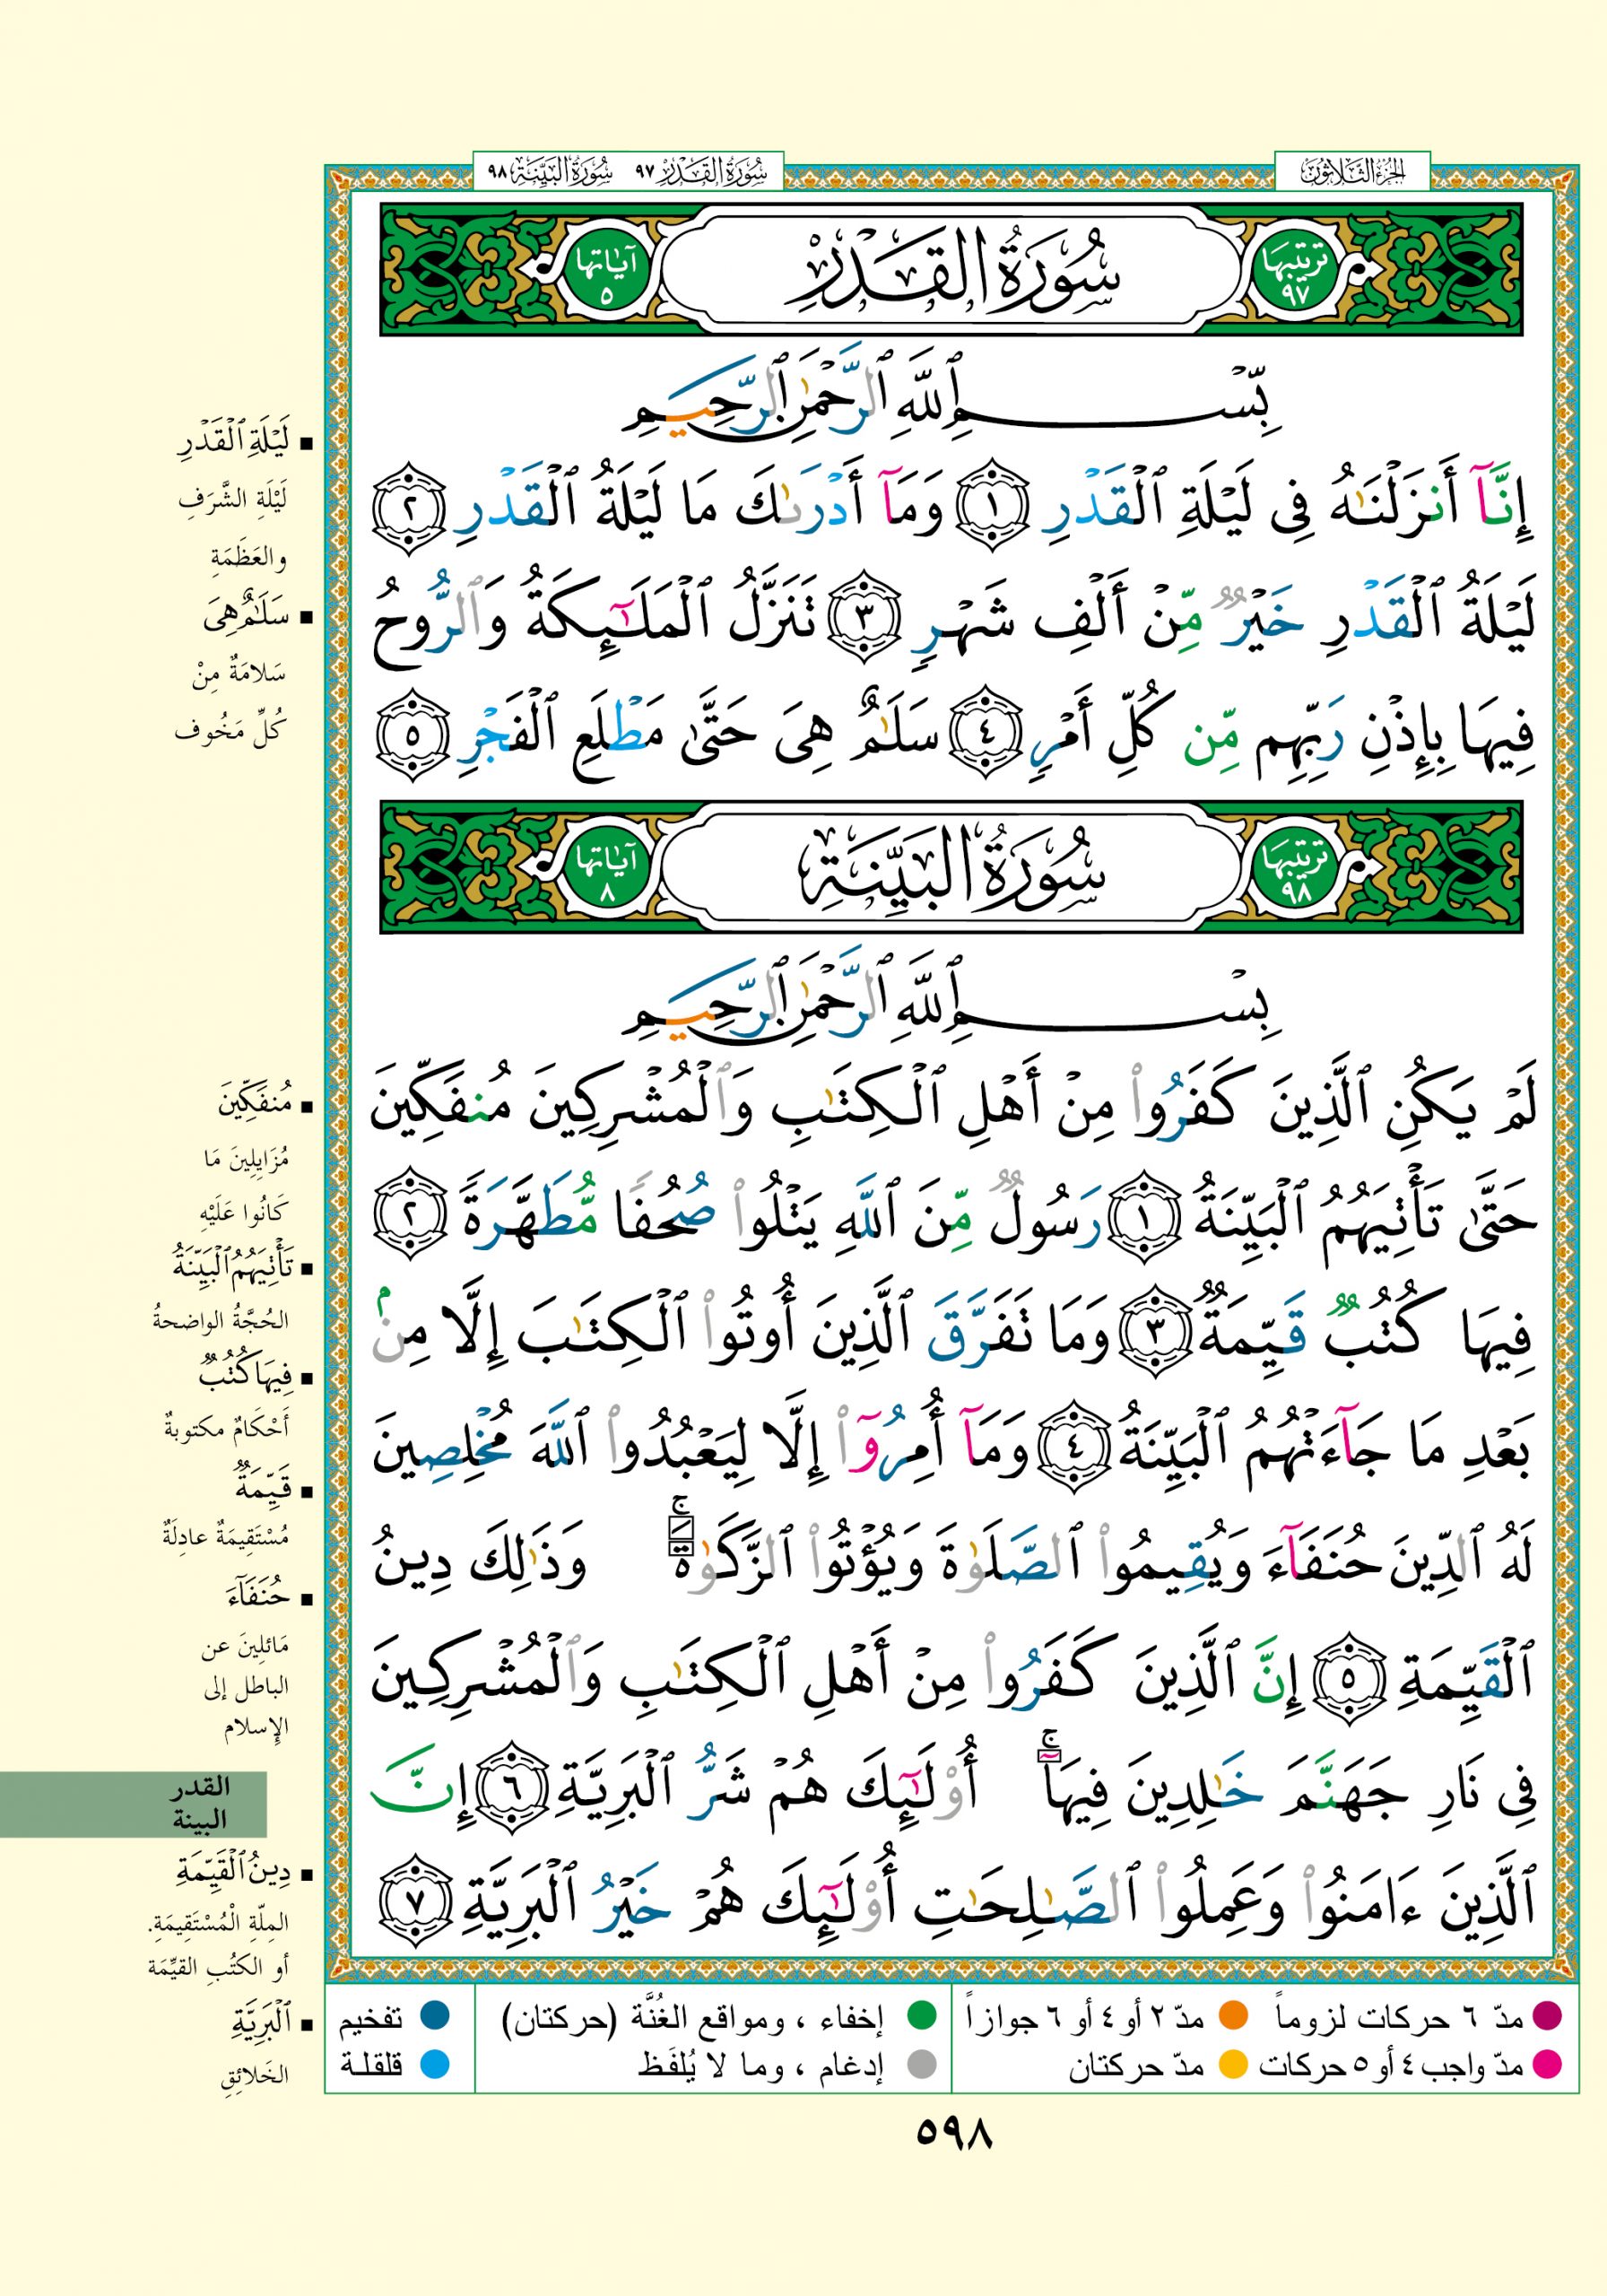 الجزء الثلاثون
سورة القدر ٩٧ سورة البينة ٩٨
ترتيبها ٩٧
سُورَةُ القَدْرِ
آياتها ٥
بِّسْمِ ٱللَّهِ ٱلرَّحْمَٰنِ ٱلرَّحِيمِ
إِنَّآ أَنزَلْنَٰهُ فِى لَيْلَةِ ٱلْقَدْرِ ١ وَمَآ أَدْرَىٰكَ مَا لَيْلَةُ ٱلْقَدْرِ ٢
لَيْلَةُ ٱلْقَدْرِ خَيْرٌ مِّنْ أَلْفِ شَهْرٍ ٣ تَنَزَّلُ ٱلْمَلَٰٓئِكَةُ وَٱلرُّوحُ
فِيهَا بِإِذْنِ رَبِّهِم مِّن كُلِّ أَمْرٍ ٤ سَلَٰمٌ هِىَ حَتَّىٰ مَطْلَعِ ٱلْفَجْرِ ٥
ترتيبها ٩٨
سُورَةُ البَيِّنَةِ
آياتها ٨
بِسْمِ ٱللَّهِ ٱلرَّحْمَٰنِ ٱلرَّحِيمِ
لَمْ يَكُنِ ٱلَّذِينَ كَفَرُوا۟ مِنْ أَهْلِ ٱلْكِتَٰبِ وَٱلْمُشْرِكِينَ مُنفَكِّينَ
حَتَّىٰ تَأْتِيَهُمُ ٱلْبَيِّنَةُ ١ رَسُولٌ مِّنَ ٱللَّهِ يَتْلُوا۟ صُحُفًا مُّطَهَّرَةً ٢
فِيهَا كُتُبٌ قَيِّمَةٌ ٣ وَمَا تَفَرَّقَ ٱلَّذِينَ أُوتُوا۟ ٱلْكِتَٰبَ إِلَّا مِنۢ
بَعْدِ مَا جَآءَتْهُمُ ٱلْبَيِّنَةُ ٤ وَمَآ أُمِرُوٓا۟ إِلَّا لِيَعْبُدُوا۟ ٱللَّهَ مُخْلِصِينَ
لَهُ ٱلدِّينَ حُنَفَآءَ وَيُقِيمُوا۟ ٱلصَّلَوٰةَ وَيُؤْتُوا۟ ٱلزَّكَوٰةَ ۚ وَذَٰلِكَ دِينُ
ٱلْقَيِّمَةِ ٥ إِنَّ ٱلَّذِينَ كَفَرُوا۟ مِنْ أَهْلِ ٱلْكِتَٰبِ وَٱلْمُشْرِكِينَ
فِى نَارِ جَهَنَّمَ خَٰلِدِينَ فِيهَآ ۚ أُو۟لَٰٓئِكَ هُمْ شَرُّ ٱلْبَرِيَّةِ ٦ إِنَّ
ٱلَّذِينَ ءَامَنُوا۟ وَعَمِلُوا۟ ٱلصَّٰلِحَٰتِ أُو۟لَٰٓئِكَ هُمْ خَيْرُ ٱلْبَرِيَّةِ ٧
لَيْلَةِ ٱلْقَدْرِ
لَيْلَةِ الشَّرَفِ
والعَظَمَةِ
سَلَٰمٌ هِىَ
سَلامَةٌ مِنْ
كُلِّ مَخُوف
مُنفَكِّينَ
مُزَايِلِينَ مَا
كَانُوا عَلَيْهِ
تَأْتِيَهُمُ ٱلْبَيِّنَةُ
الحُجَّةُ الواضحةُ
فِيهَا كُتُبٌ
أَحْكَامٌ مكتوبةٌ
قَيِّمَةٌ
مُسْتَقِيمَةٌ عادِلَةٌ
حُنَفَآءَ
مَائلِينَ عن
الباطل إلى
الإسلام
القدر
البينة
دِينُ ٱلْقَيِّمَةِ
المِلّةِ الْمُسْتَقِيمَةِ.
أو الكتُبِ القيِّمَة
ٱلْبَرِيَّةِ
الخَلائِقِ
مدّ ٦ حركات لزوماً مدّ ٢ أو ٤ أو ٦ جوازاً إخفاء ، ومواقع الغُنَّة (حركتان) تفخيم
مدّ واجب ٤ أو ٥ حركات مدّ حركتان إدغام ، وما لا يُلفَظ قلقلة
٥٩٨